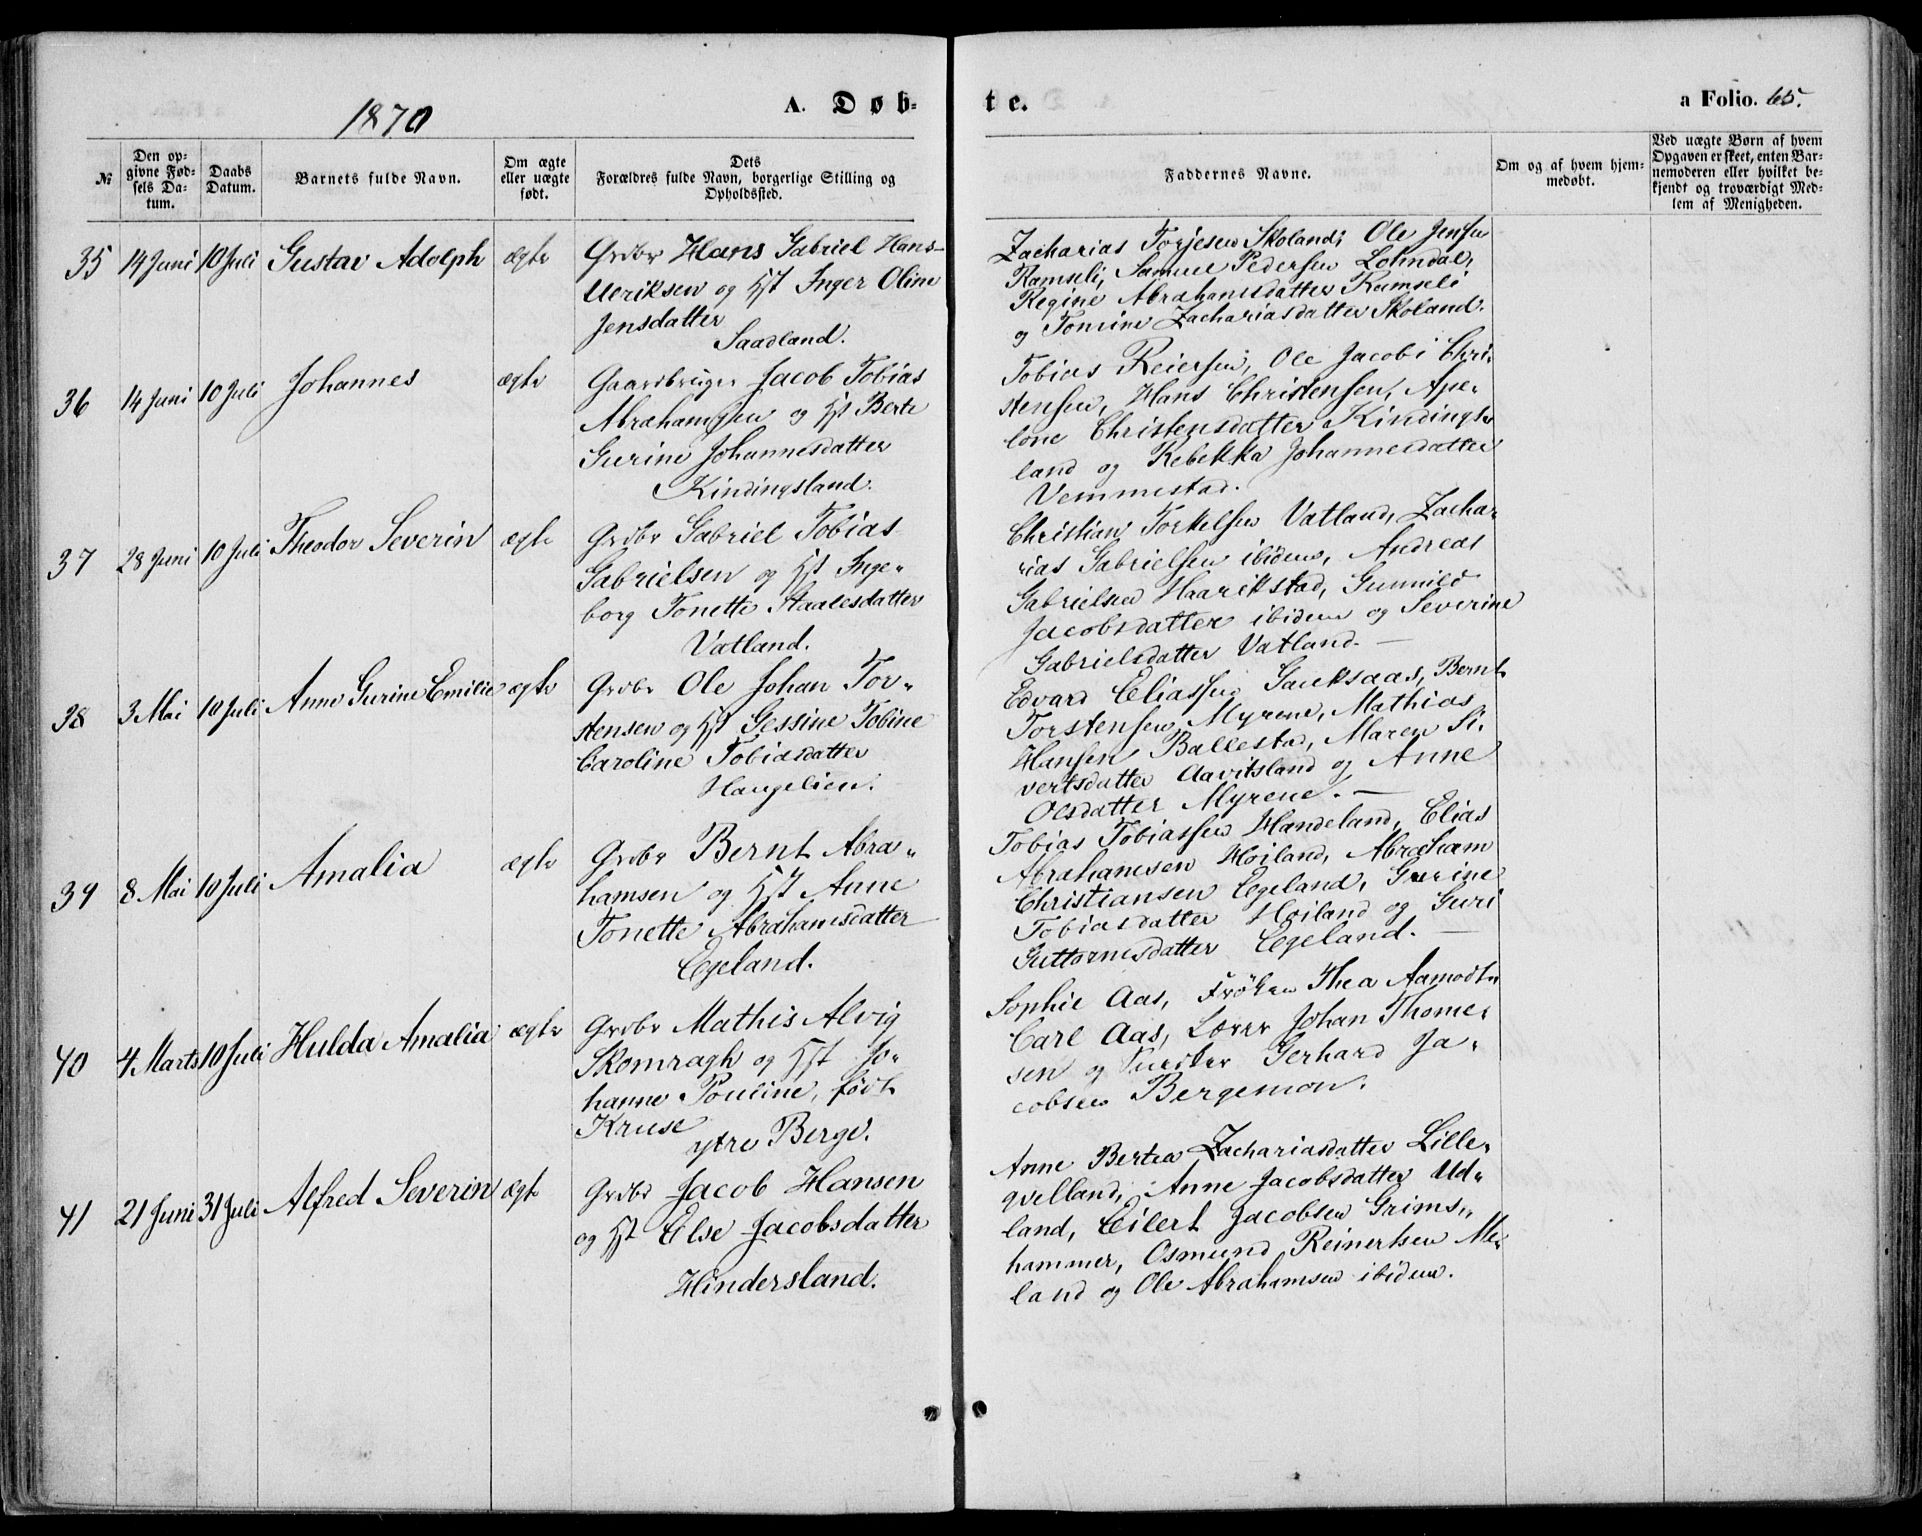 1870
A. Døb-
te.
a Folio. 65.
№
Den op-
givne Fød-
sels Da-
tum.
Daabs
Datum.
Barnets fulde Navn.
Om ægte
eller uægte
født.
Dets
Forældres fulde Navn, borgerlige Stilling og
Opholdssted.
Faddernes Navne.
Om og af hvem hjem-
medøbt.
Ved uægte Børn af hvem
Opgaven er skeet, enten Bar-
nemoderen eller hvilket be-
kjendt og troværdigt Med-
lem af Menigheden.
35 14 Juni 10 Juli Gustav Adolph ægte
Grdbr Hans Gabriel Hans-
Ulriksen og Hst Inger Oline
Jensdatter
Saadland.
Zacharias Torjesen Skoland, Ole Jensen
Ramseli, Samuel Pedersen Lohndal,
Regine Abrahamsdatter Ramseli
og Tomine Zachariasdatter Skoland.
36 14 Juni 10 Juli Johannes ægte
Gaardbruger Jacob Tobias
Abrahamsen og Hst Berte
Gurine Johannesdatter
Kindingsland.
Tobias Reiersen, Ole Jacob Chri-
stensen, Hans Christensen, Ape-
lone Christensdatter Kindings-
land og Rebekka Johannesdatter
Vemmestad.
37 28 Juni 10 Juli Theodor Severin ægte
Grdbr Gabriel Tobias
Gabrielsen og Hst Inge-
borg Tonette Staalesdatter
Vatland.
Christian Torkelsen Vatland, Zachar-
rias Gabrielsen ibidem, Andreas
Gabrielsen Haarikstad, Gunnild
Jacobsdatter ibidem og Severine
Gabrielsdatter Vatland. —
38 3 Mai 10 Juli Anne Gurine Emilie ægte
Grdbr Ole Johan Tor-
stensen og Hst Gessine Tobine
Caroline Tobiasdatter
Haugelien.
Edvard Eliassen Sauksaas, Bernt
Torstensen Myrene, Mathias
Hansen Ballestad, Maren Si-
vertsdatter Aavitsland og Anne
Olsdatter Myrene. —
39 8 Mai 10 Juli Amalia ægte
Grdbr Bernt Abra-
hamsen og Hst Anne
Tonette Abrahamsdatter
Egeland.
Tobias Tobiassen Handeland, Elias
Abrahamsen Høiland, Abraham
Christiansen Egeland, Gurine
Tobiasdatter Høiland og Guri
Guttormsdatter Egeland. —
40 4 Marts 10 Juli Hulda Amalia ægte
Grdbr Mathis Alvig
Skomragh og Hst Jo-
hanne Pouline, født
Kruse
ytre Berge.
Sophie Aas, Frøken Thea Aamodt,
Carl Aas, Lærer Johan Thome-
sen og Gerhard Ja-
cobsen Bergemon.
41 21 Juni 31 Juli Alfred Severin ægte
Grdbr Jacob Hansen
og Hst Else Jacobsdatter
Hindersland.
Anne Bertea Zachariasdatter Lille-
qvelland, Anne Jacobsdatter Ud-
land, Eilert Jacobsen Grims-
hammer, Osmund Reinertsen Me-
land og Ole Abrahamsen ibidem.